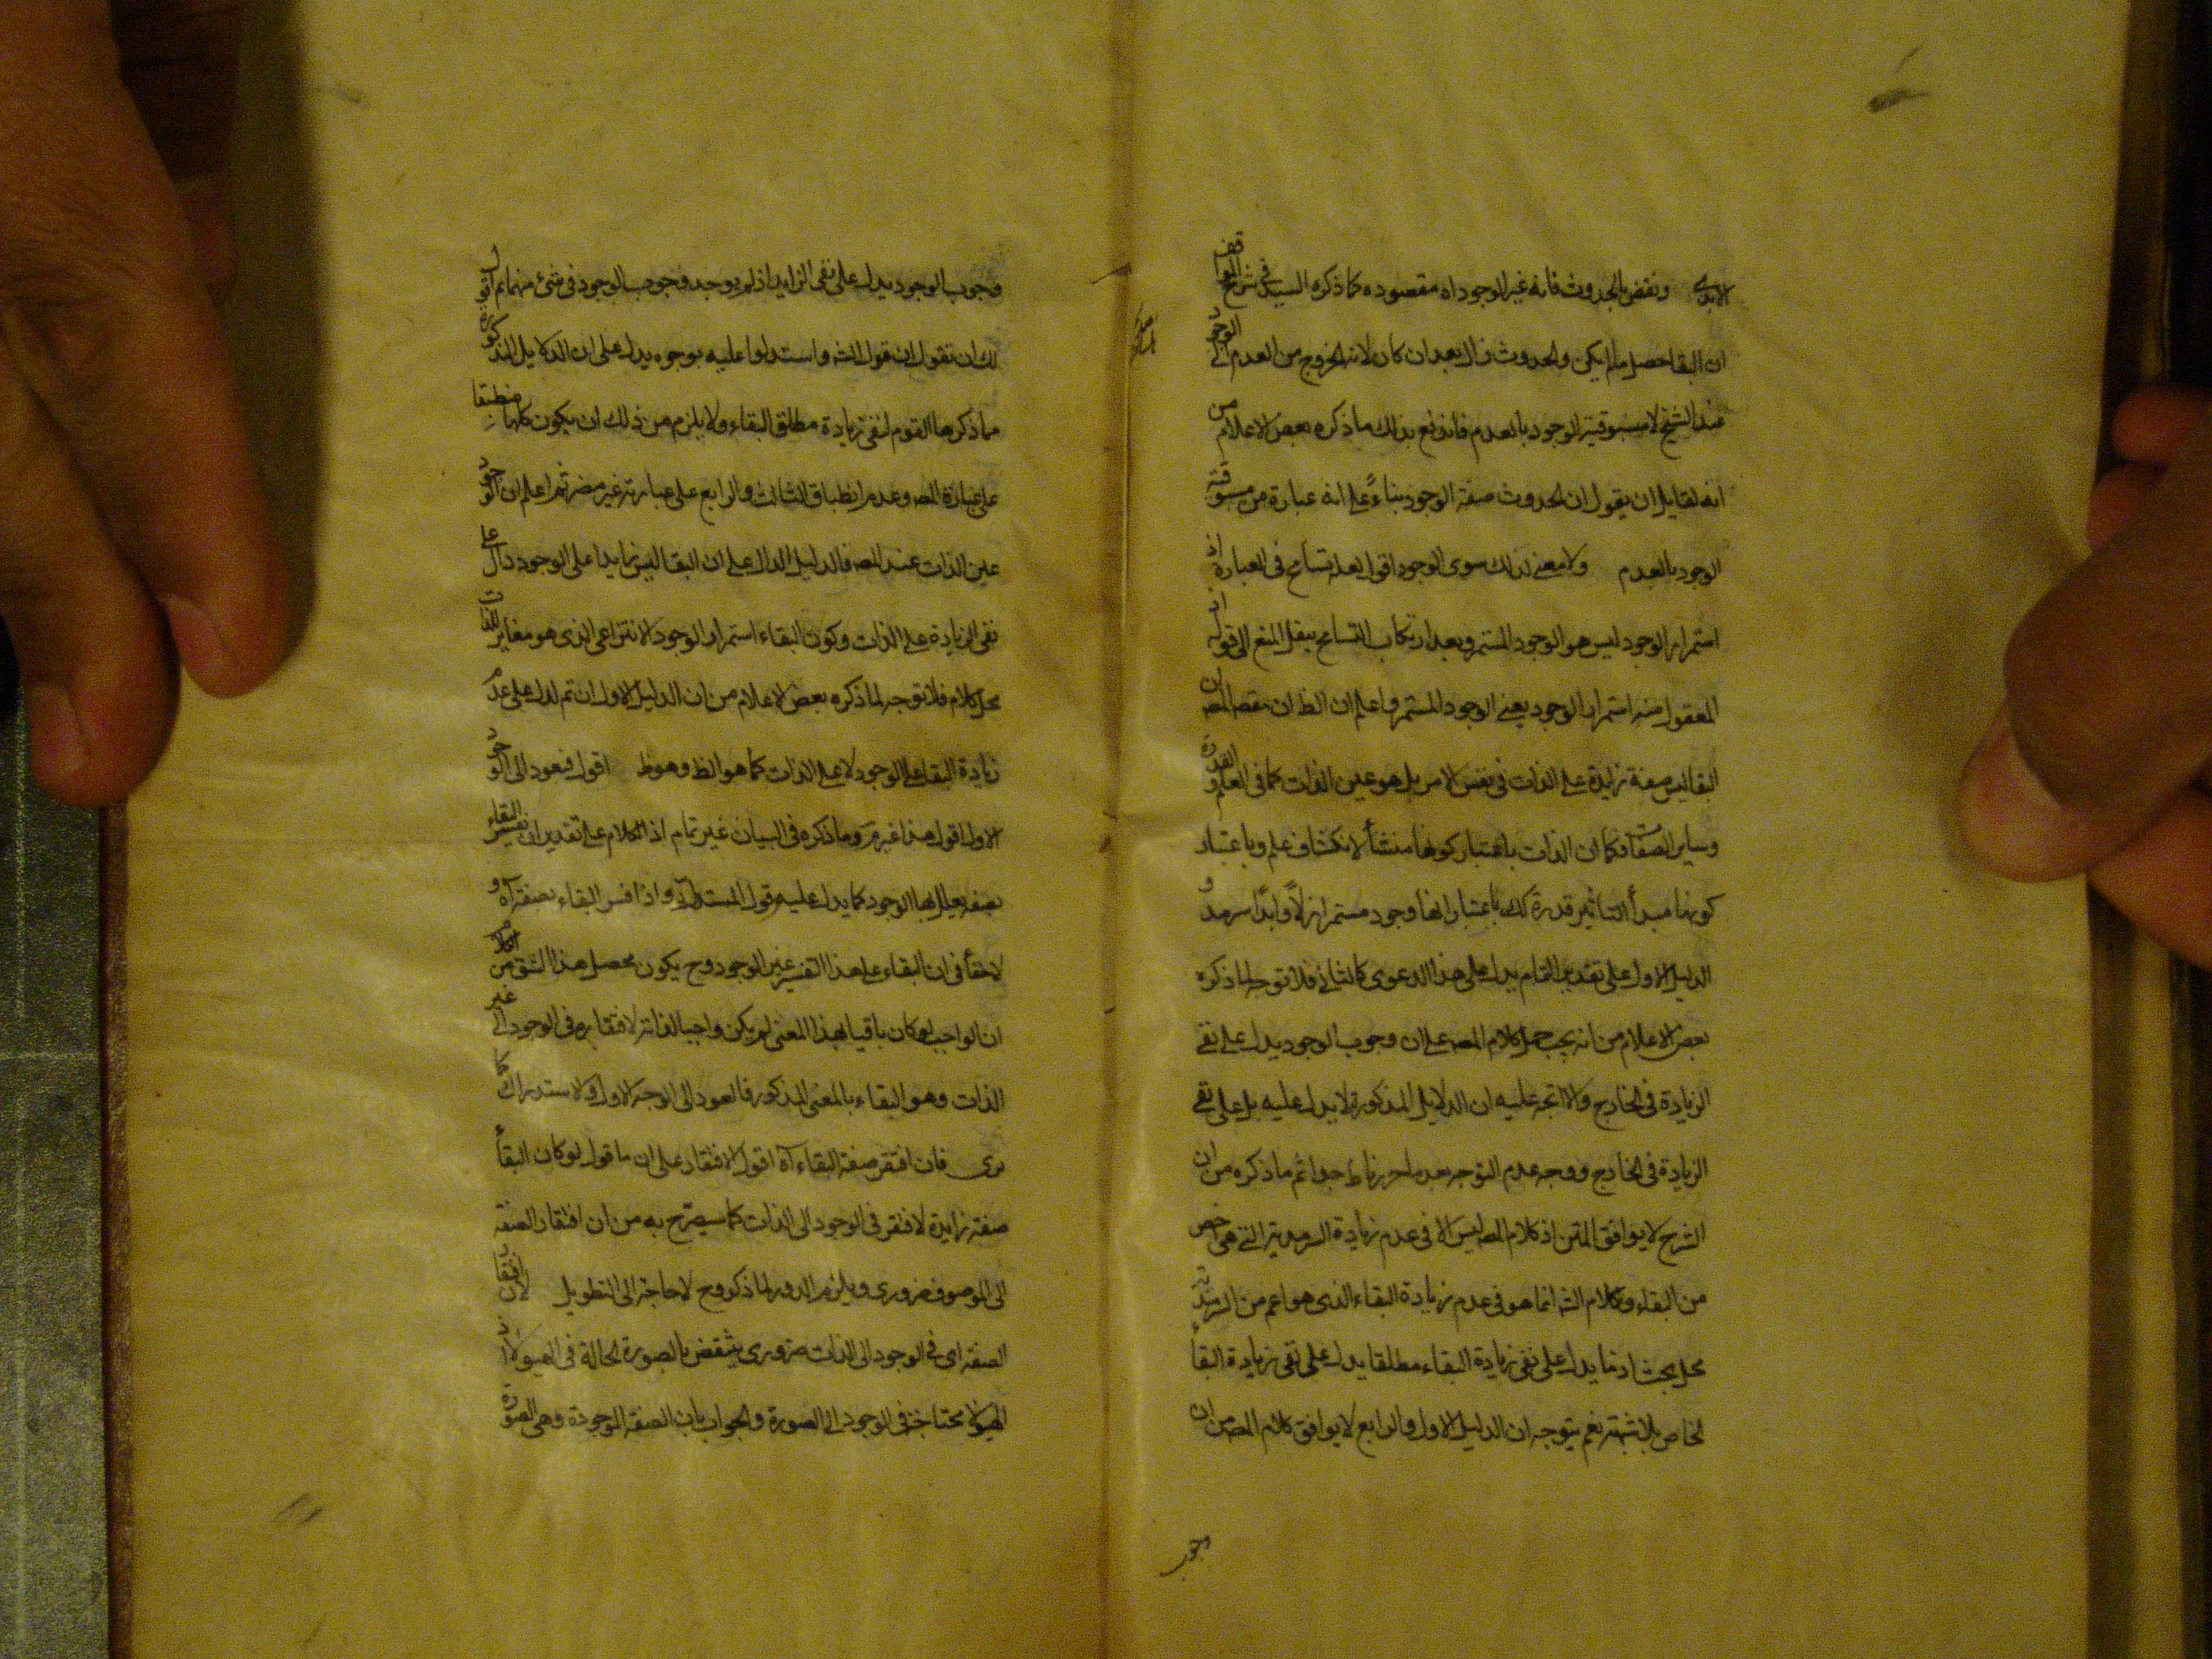 الابدى ونقض بالحدوث فانه غير الوجود اه مقصوده كما ذكره السيد فى شرح المواقف
ان البقا حصل ما لم يكن والحدوث زال بعد ان كان لانه الخروج من العدم الى الوجود
عند الشيخ لا مسبوقية الوجود بالعدم فاندفع بذلك ما ذكره بعض الاعلام من
انه لقايل ان يقول ان الحدوث صفة الوجود بناءً على انه عبارة من مسبوقية
الوجود بالعدم ولا معنى لذلك سوى الوجود اقول لعله تسامح فى العبارة اذ
استمرار الوجود ليس هو الوجود المستمر وبعد ارتكاب التسامح ينقل المنع الى قوله ان
المعقول منه استمرار الوجود يعنى الوجود المستمر واعلم ان الظ ان مقصد المصه ان
البقا ليس صفة زايدة على الذات فى نفس الامر بل هو عين الذات كما فى العلم والقدرة
وساير الصفات فكما ان الذات باعتبار كونها منشأ لانكشاف علم وباعتبار
كونها مبدأ التاثير قدرة كك باعتبار انها وجود مستمر ازلاً وابداً سرمد و
الدليل الاول على تقدير التمام يدل على هذا الدعوى كالثانى فلا توجه لما ذكره
بعض الاعلام من انه يجب حمل كلام المصه على ان وجوب الوجود يدل على نفى
الزيادة فى الخارج والا اتجه عليه ان الدلايل المذكورة لا يدل عليه بل على نفى
الزيادة فى الخارج ووجه عدم التوجه بعد ما حررناه جدا ثم ما ذكره من ان
الشرح لا يوافق المتن اذ كلام المصه ليس الا فى عدم زيادة السرمدية التى هى اخص
من البقاء وكلام الشه انما هو فى عدم زيادة البقاء الذى هو اعم من السرمدية
محل بحث اذ ما يدل على نفى زيادة البقاء مطلقا يدل على نفى زيادة البقاء
الخاص بلا شبهة نعم يتوجه ان الدليل الاول والرابع لا يوافق كلام المصه من ان
وجوب
وجوب الوجود يدل على نفى الزايد اذ لم يوجد وجوب الوجود فى شئ منهما ثم اقول
لك ان تقول ان قول الشه واستدلوا عليه بوجوه يدل على ان الدلايل المذكورة
مما ذكرها القوم لنفى زيادة مطلق البقاء ولا يلزم من ذلك ان يكون كلها منطبقا
على عبارة المصه وعدم انطباق الثالث والرابع على عبارته غير مضر ثم اعلم ان الوجود
عين الذات عند المصه فالدليل الدال على ان البقا ليس زايدا على الوجود دال على
نفى الزيادة على الذات وكون البقاء استمرار الوجود الانتزاعى الذى هو مغاير للذات
محل كلام فلا توجه لما ذكره بعض الاعلام من ان الدليل الاول ان تم لدل على عدم
زيادة البقا على الوجود لا على الذات كما هو الظ وهو ظ اقول فيعود الى الوجود
الاول اقول هذا غير مر وما ذكره فى البيان غير تمام اذ الكلام على تقدير ان يفسر البقاء
بصفة يعلل بها الوجود كما يدل عليه قول المستدل واذا فسر البقاء بصفة آه و
لا خفأ فى ان البقاء على هذا التفسير غير الوجود وح يكون محصل هذا الشق من الكلام
ان الواجب لو كان باقيا بهذا المعنى لم يكن واجبا لذاته لافتقاره فى الوجود الى غير
الذات وهو البقاء بالمعنى المذكور فالعود الى الوجه الاول ولا استدراك كما
ترى فان افتقر صفة البقاء آه اقول الافتقار على ان ما قول لو كان البقاء
صفة زايدة لافتقر فى الوجود الى الذات كما سيصرح به من ان افتقار الصفة
الى الموصوف ضرورى ويلزم الدور لما ذكر وح لا حاجة الى التطويل لان افتقار
الصفة اى فى الوجود الى الذات ضرورى ينتقض بالصورة الحالة فى الهيولا اذ
الهيولا محتاجة فى الوجود الى الصورة والجواب بان الصفة الموجودة وهى الصورة